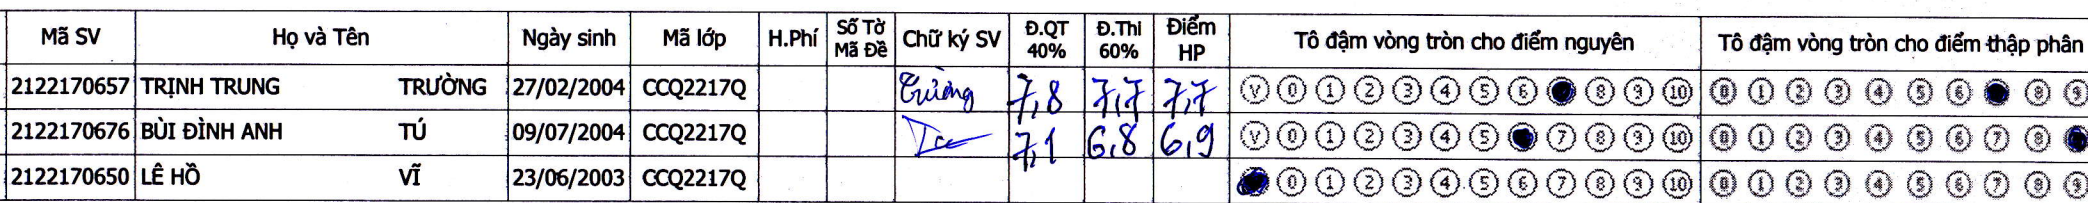 Mã SV Họ và Tên Ngày sinh Mã lớp H.Phí Số Tờ Mã Đề Chữ ký SV Đ.QT 40% Đ.Thi 60% Điểm HP Tô đậm vòng tròn cho điểm nguyên Tô đậm vòng tròn cho điểm thập phân
2122170657 TRỊNH TRUNG TRƯỜNG 27/02/2004 CCQ2217Q Trường 7,8 7,7 7,7 V 0 1 2 3 4 5 6 8 9 10 0 1 2 3 4 5 6 8 9
2122170676 BÙI ĐÌNH ANH TÚ 09/07/2004 CCQ2217Q 7,1 6,8 6,9 V 0 1 2 3 4 5 7 8 9 10 0 1 2 3 4 5 6 7 8
2122170650 LÊ HỒ VĨ 23/06/2003 CCQ2217Q 0 1 2 3 4 5 6 7 8 9 10 0 1 2 3 4 5 6 7 8 9